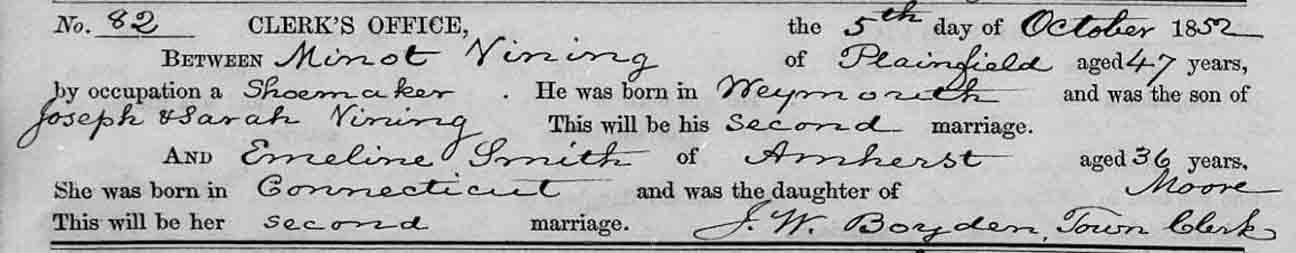 No. 82 CLERK'S OFFICE, the 5th day of October 1852
BETWEEN Minot Vining of Plainfield aged 47 years,
by occupation a Shoemaker . He was born in Weymouth and was the son of
Joseph & Sarah Vining This will be his Second marriage.
AND Emeline Smith of Amherst aged 36 years.
She was born in Connecticut and was the daughter of Moore
This will be her second marriage. J. W. Boyden, Town Clerk